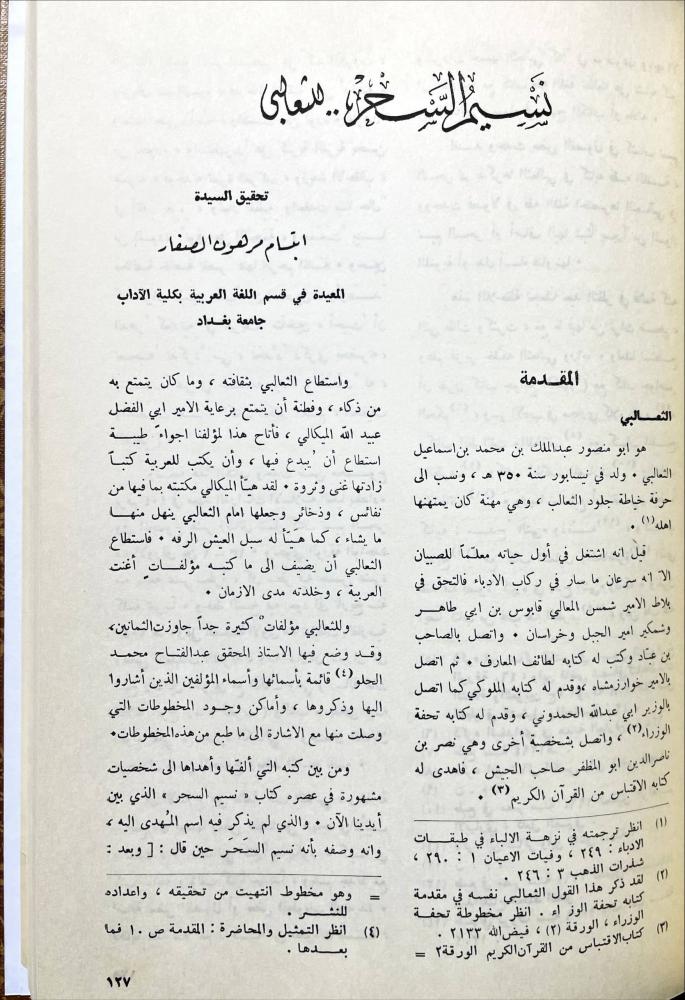 نَسِيمُ السَّحَرِ .. للثعالبي
تحقيق السيدة
ابتسام مرهون الصفار
المعيدة في قسم اللغة العربية بكلية الآداب
جامعة بغداد
المقدمة
الثعــالبي
هو ابو منصور عبدالملك بن محمد بن اسماعيل
الثعالبي ٠ ولد في نيسابور سنة ٣٥٠ هـ ، ونسب الى
حرفة خياطة جلود الثعالب ، وهي مهنة كان يمتهنها
اهله(١) ٠
قيل انه اشتغل في أول حياته معلمّاً للصبيان
الا انه سرعان ما سار في ركاب الادباء فالتحق في
بلاط الامير شمس المعالي قابوس بن ابي طاهــر
وشمكير امير الجبل وخراسان ٠ واتصل بالصاحب
بن عبّاد وكتب له كتابه لطائف المعارف ٠ ثم اتصل
بالامير خوارزمشاه ،وقدم له كتابه الملوكي كما اتصل
بالوزير ابي عبدالله الحمدوني ، وقدم له كتابه تحفة
الوزراء(٢) ، واتصل بشخصية أخرى وهي نصر بن
ناصرالدين ابو المظفر صاحب الجيش ، فاهدى له
كتابه الاقتباس من القرآن الكريم(٣) ٠
(١) انظر ترجمته في نزهة الالباء في طبقــات
الادباء : ٢٤٩ ، وفيات الاعيان ١ : ٢٩٠ ،
شذرات الذهب ٣ : ٢٤٦ .
(٢) لقد ذكر هذا القول الثعالبي نفسه في مقدمة
كتابه تحفة الوزراء . انظر مخطوطة تحفــة
الوزراء ، الورقة (٢) ، فيض الله ٢١٣٣ .
(٣) كتاب الاقتباس من القرآن الكريم الورقة ٢ =
واستطاع الثعالبي بثقافته ، وما كان يتمتع به
من ذكاء ، وفطنة أن يتمتع برعاية الامير ابي الفضل
عبيد الله الميكالي ، فأتاح هذا لمؤلفنا اجواءً طيبــة
استطاع أن يُبدع فيها ، وأن يكتب للعربية كتبــاً
زادتها غنى وثروة ٠ لقد هيّأ الميكالي مكتبته بما فيها من
نفائس ، وذخائر وجعلها امام الثعالبي ينهل منهــا
ما يشاء ، كما هَيّأ له سبل العيش الرفه ٠ فاستطاع
الثعالبي أن يضيف الى ما كتبــه مؤلفــاتٍ أغنت
العربية ، وخلدته مدى الازمان ٠
وللثعالبي مؤلفاتٌ كثيرة جداً جاوزت الثمانين،
وقــد وضع فيها الاستاذ المحقق عبدالفتاح محمــد
الحلو(٤) قائمة بأسمائها وأسماء المؤلفين الذين أشاروا
اليها وذكروها ، وأماكن وجــود المخطوطات التي
وصلت منها مع الاشارة الى ما طبع من هذه المخطوطات٠
ومن بين كتبه التي ألفّها وأهداها الى شخصيات
مشهورة في عصره كتاب « نسيم السحر ، الذي بين
أيدينا الآن ٠ والذي لم يذكر فيه اسم المُهدى اليه ،
وانه وصفه بأنه نسيم السَحَــر حين قال : [ وبعد :
= وهو مخطوط انتهيت من تحقيقه ، واعداده
للنشــر .
(٤) انظر التمثيل والمحاضرة : المقدمة ص ١٠ فما
بعــدها .
١٢٧